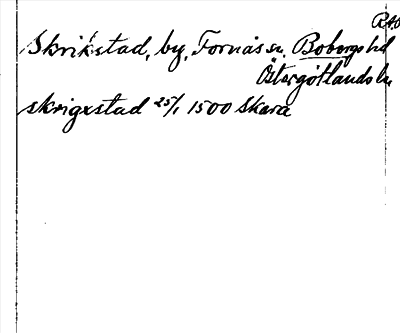 RAÖ
Skrikstad, by, Fornåsa sn. Bobergs hd
Östergötlands län
skrigxstad 25/1 1500 Skara